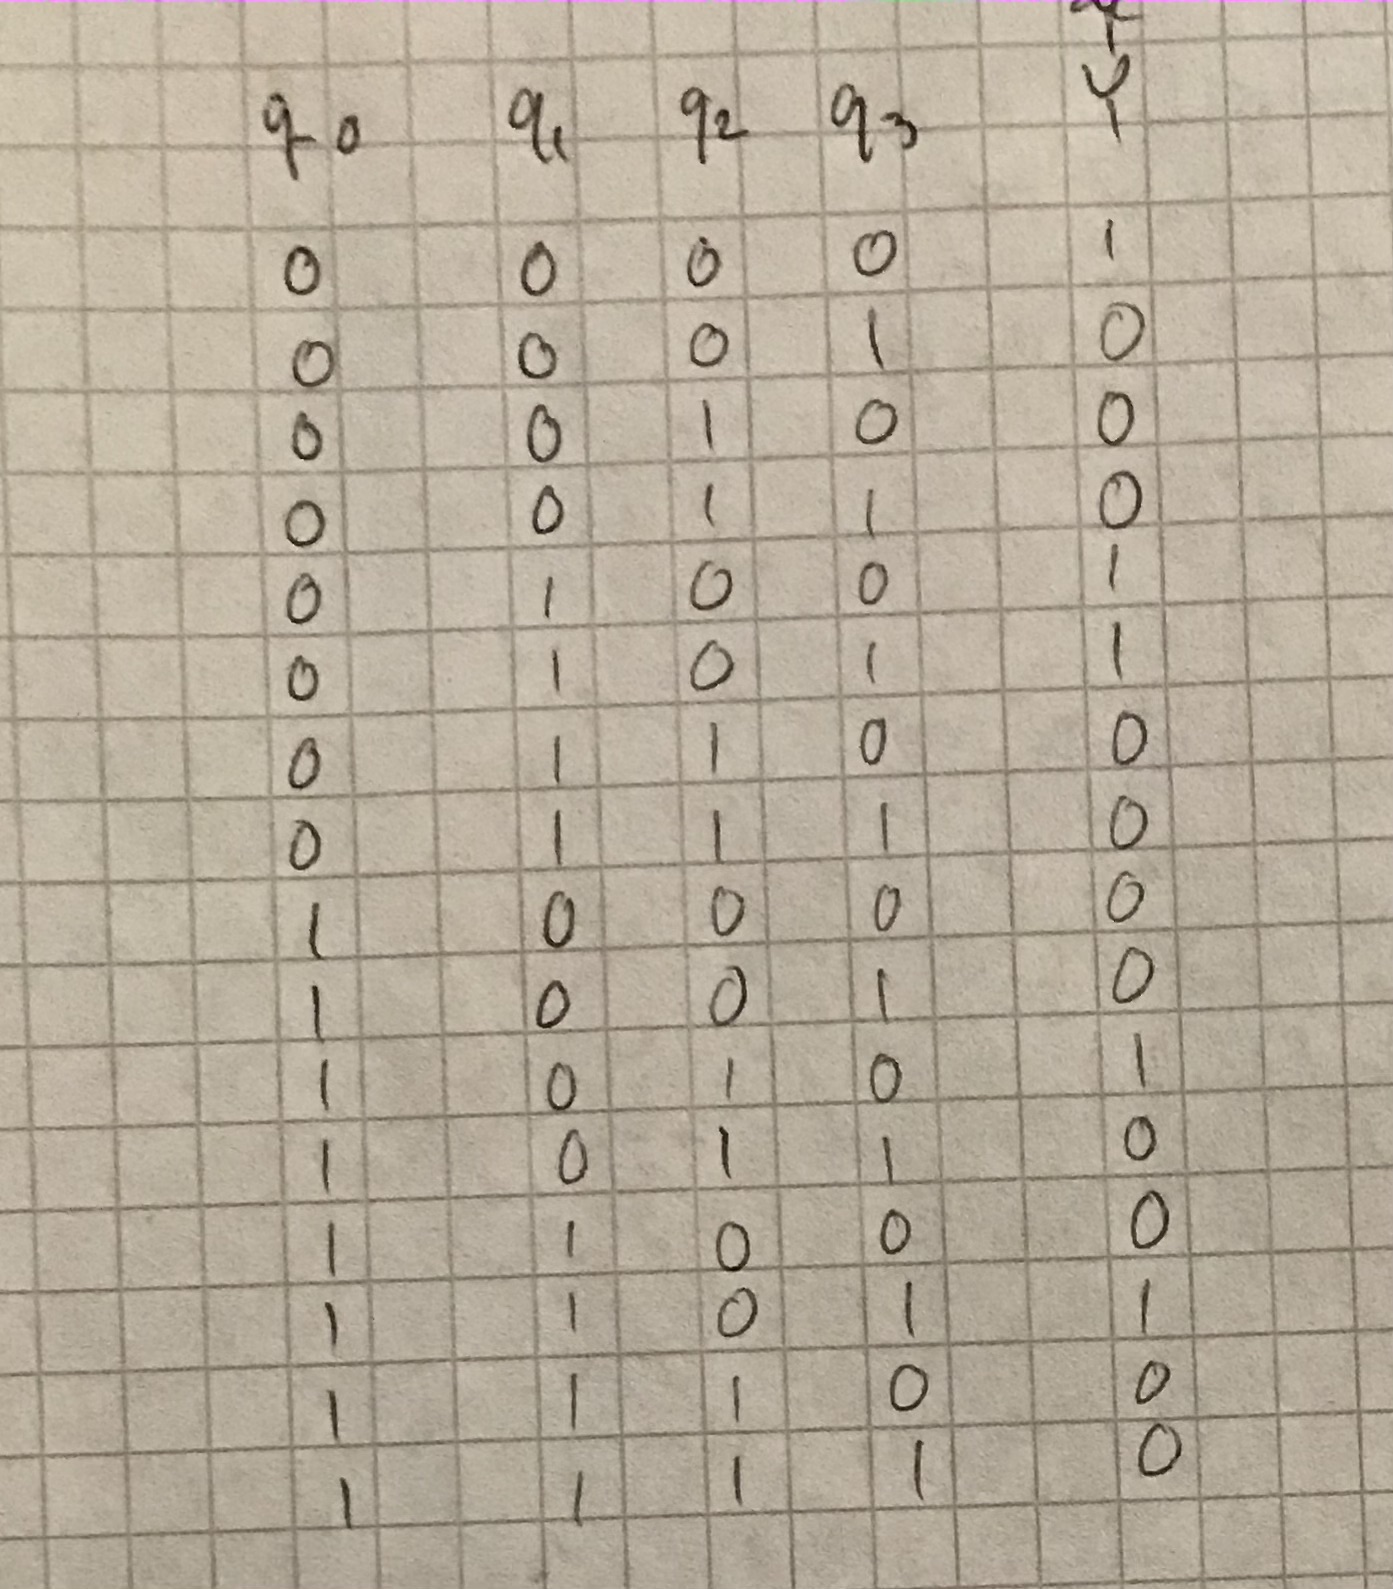 q0 q1 q2 q3 Y
0 0 0 0 1
0 0 0 1 0
0 0 1 0 0
0 0 1 1 0
0 1 0 0 1
0 1 0 1 1
0 1 1 0 0
0 1 1 1 0
1 0 0 0 0
1 0 0 1 0
1 0 1 0 1
1 0 1 1 0
1 1 0 0 0
1 1 0 1 1
1 1 1 0 0
1 1 1 1 0